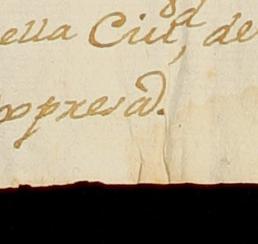 ella Ciu.d, de
opresa.